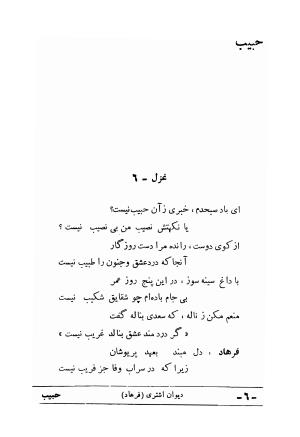 حبیب
غزل - ۶
ای باد سبحدم، خبری ز آن حبیب نیست؟
یا نکهتش نصیب من بی نصیب نیست؟
از کوی دوست، رانده مرا دست روزگار
آنجا که درد عشق و جنون را طبیب نیست
با داغ سینه سوز، در این پنج روز عمر
بی جام باده ام چو شقایق شکیب نیست
منعم مکن ز ناله، که سعدی بناله گفت
« گر دردمند عشق بنالد غریب نیست »
فرهاد، دل مبند بعهد پریوشان
زیرا که در سراب وفا جز فریب نیست
حبیب
دیوان اشتری (فرهاد)
-۶-